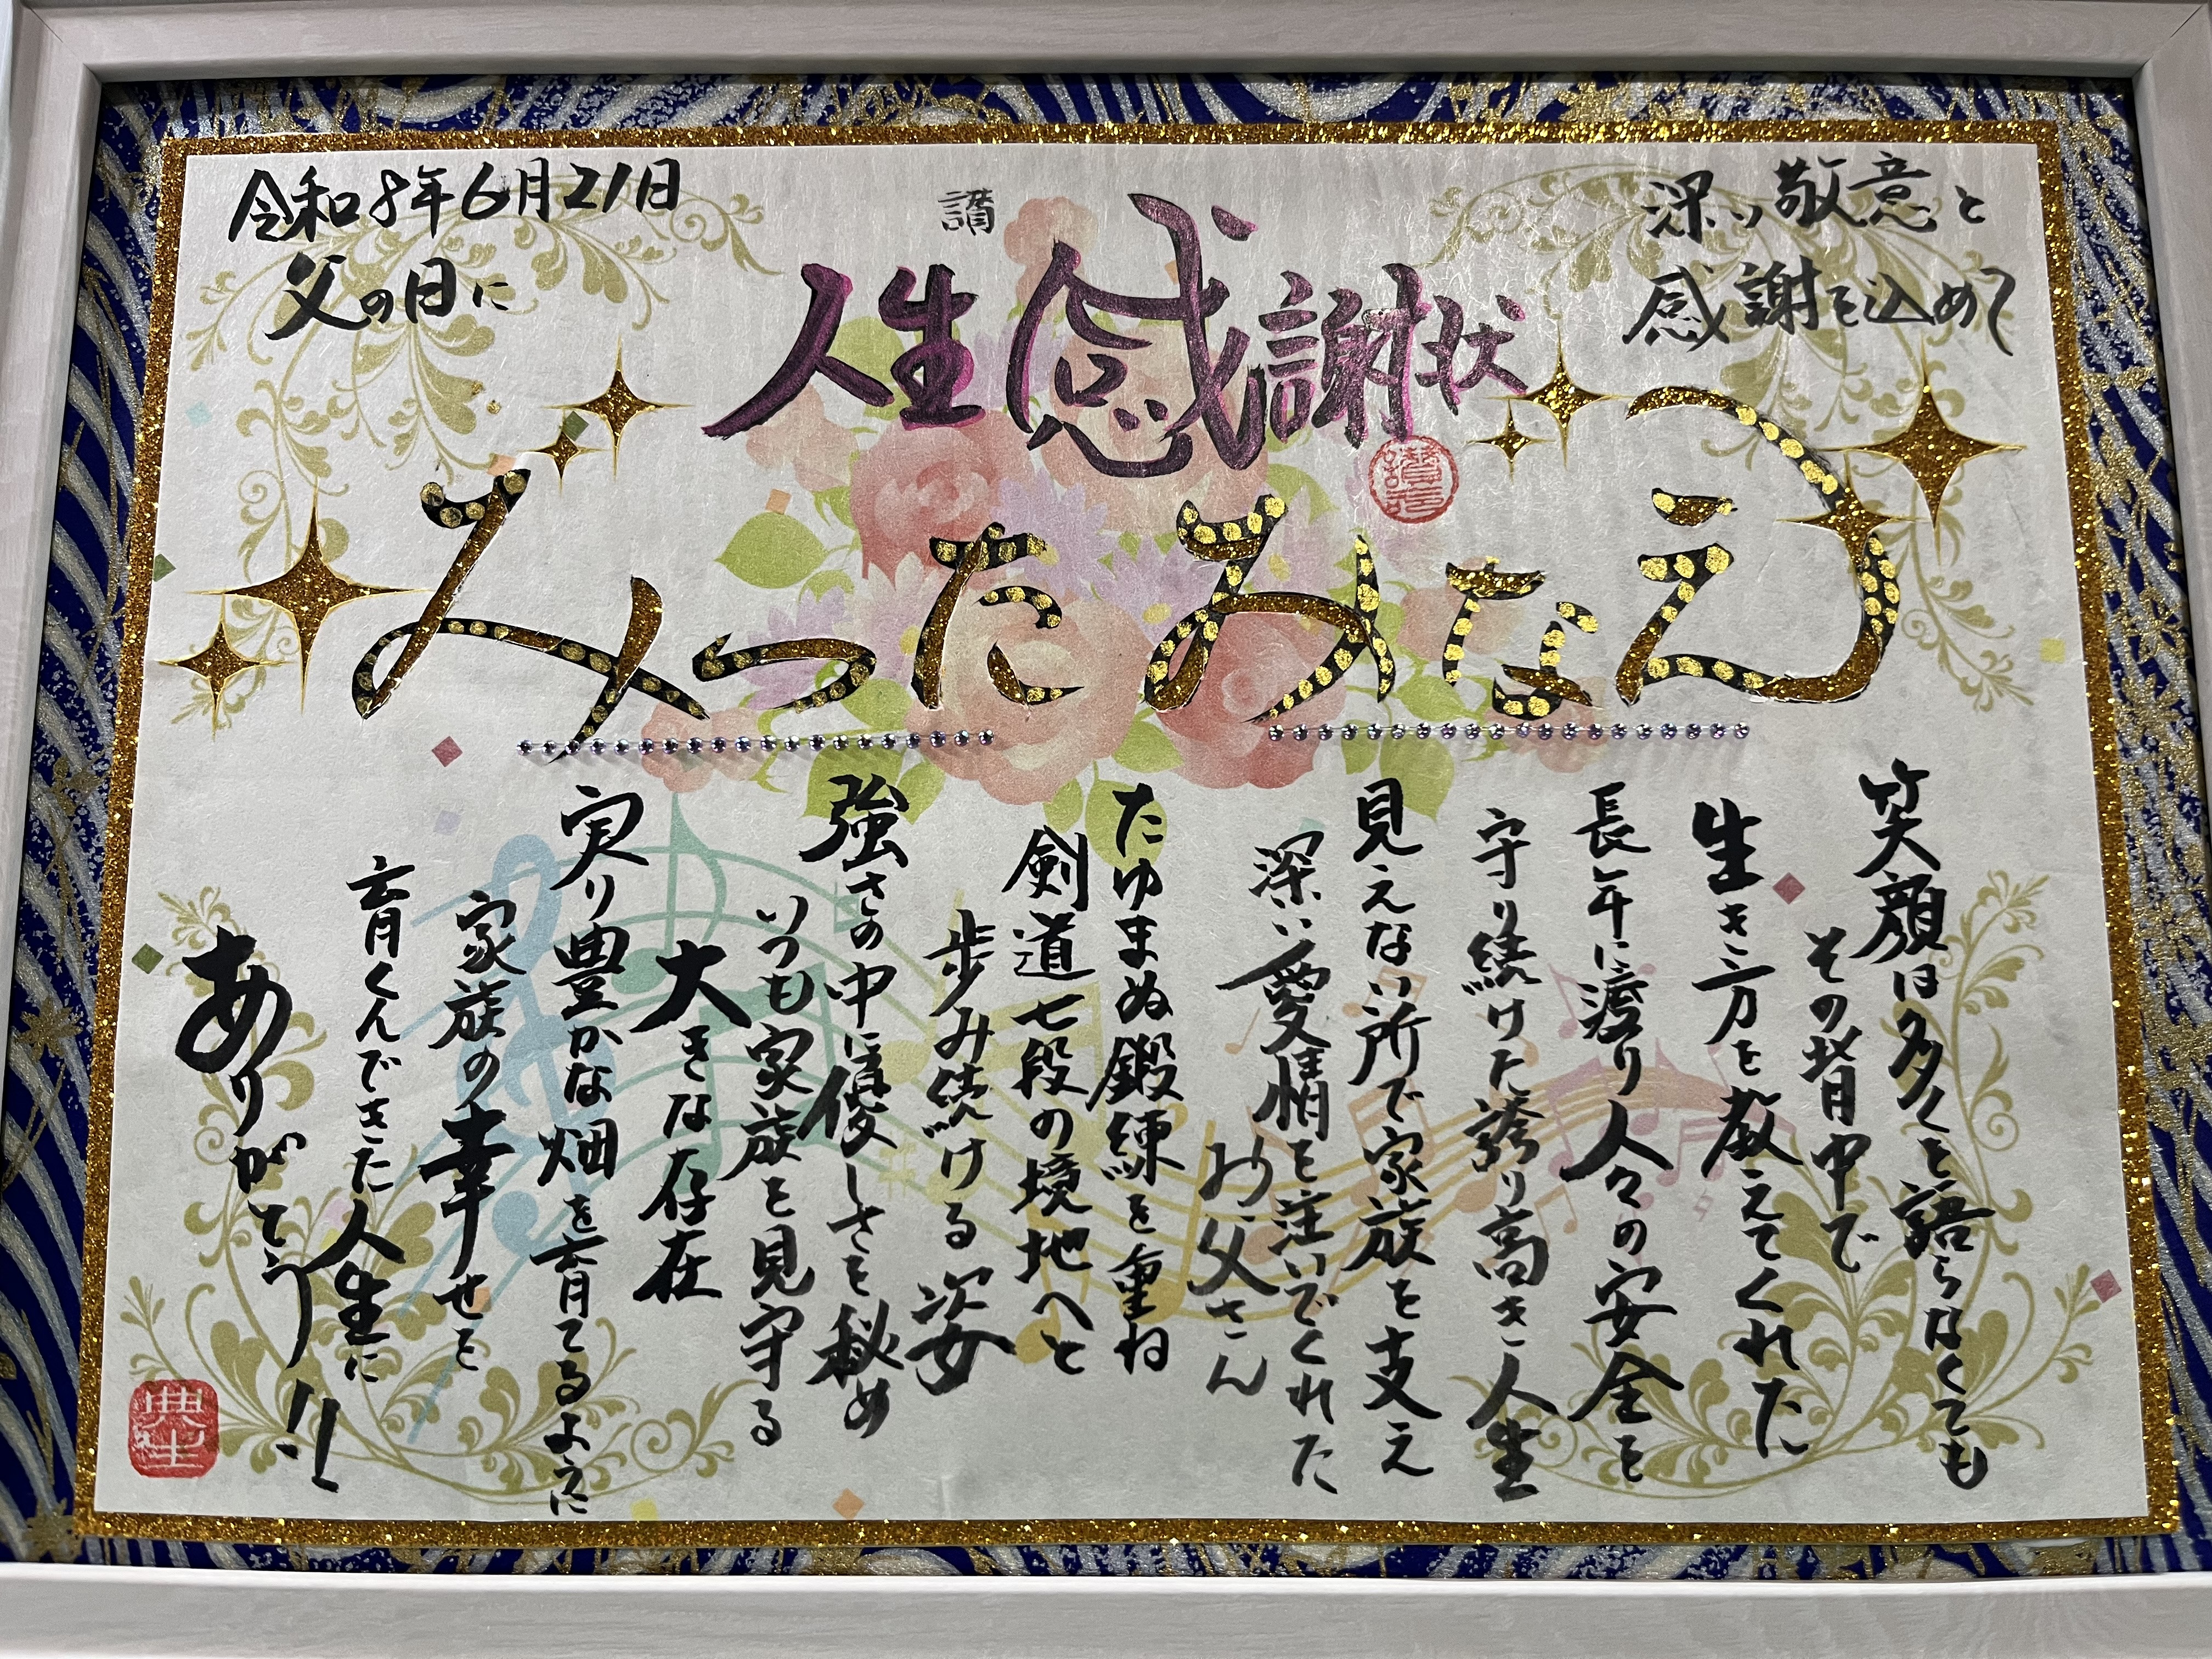 令和8年6月21日
父の日に
讃
人生感謝状
深い敬意と
感謝を込めて
みつた みなえ
笑顔は多くを語らなくても
その背中で
生き方を教えてくれた
長年に渡り人々の安全を
守り続けた誇り高き人生
見えない所で家族を支え
深い愛情を注いでくれた
お父さん
たゆまぬ鍛練を重ね
剣道七段の境地へと
歩み続ける姿
強さの中に優しさを秘め
いつも家族を見守る
大きな存在
実り豊かな畑を育てるように
家族の幸せを
育くんできた人生に
ありがとう!!
典生